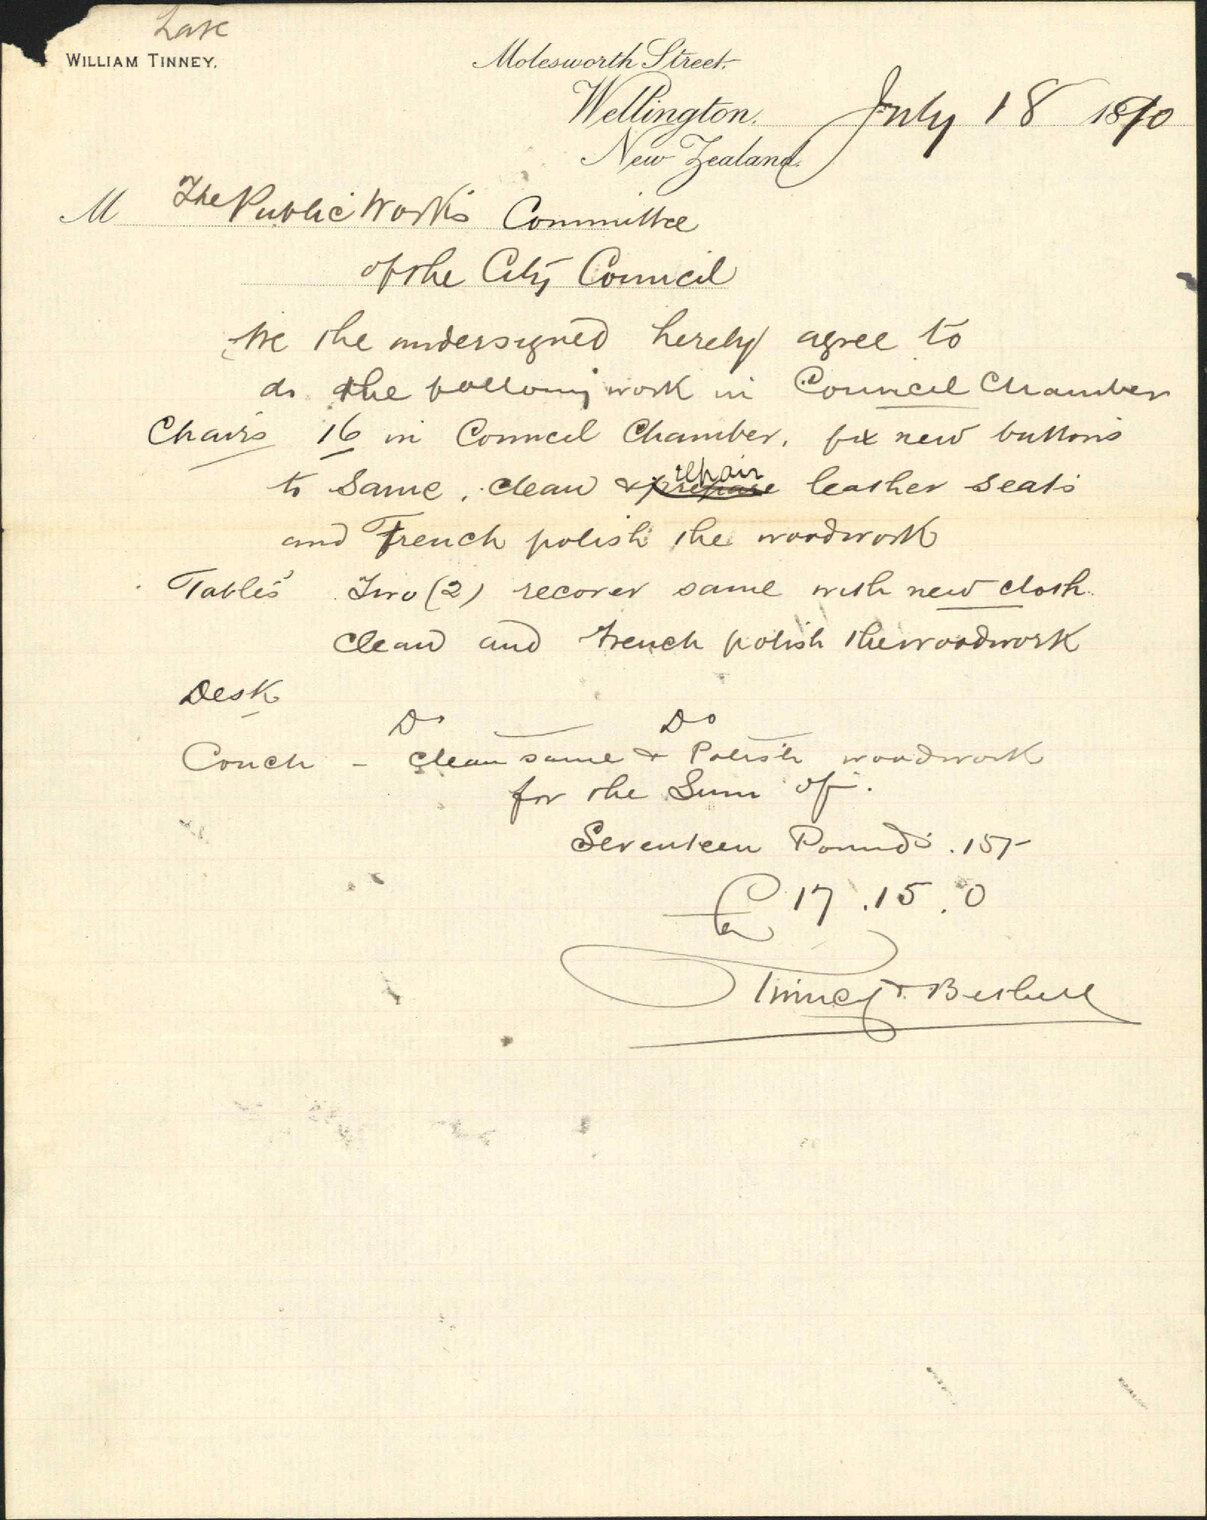 Late
WILLIAM TINNEY.
Molesworth Street.
Wellington. July 18 1890
New Zealand.
M The Public Works Committee
of the City Council
We the undersigned hereby agree to
do the following work in Council Chamber
Chairs 16 in Council Chamber, fix new buttons
to same, clean & prepare repair leather seats
and French polish the woodwork
Tables Two (2) recover same with new cloth
clean and French polish the woodwork
Desk
Do — Do
Couch - clean same & Polish woodwork
for the Sum of.
Seventeen Pounds . 15/-
£17 . 15 . 0
Tinney & Bethell